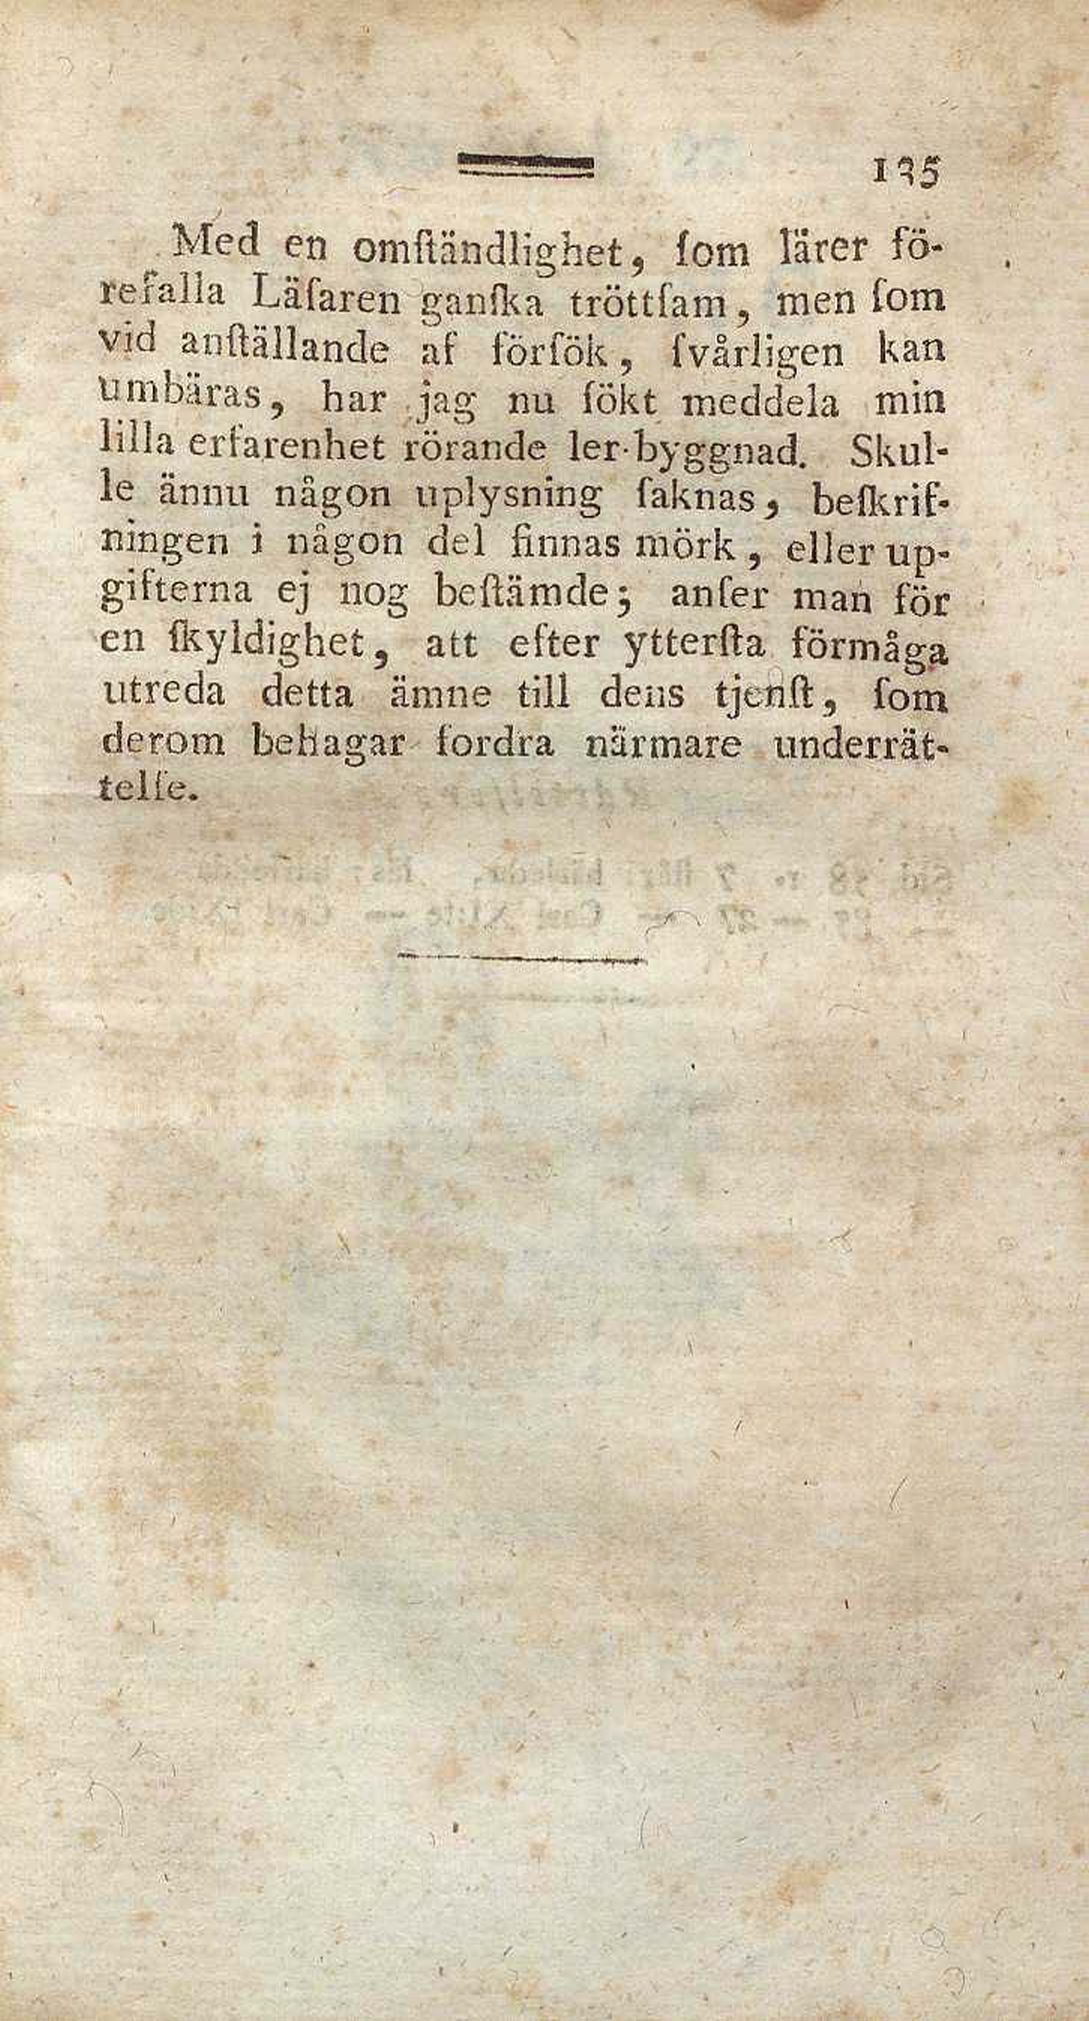 135
Med en omſtändlighet, ſom lärer fö-
refalla Läſaren ganſka tröttſam, men ſom
vid anſtällande af förſök, ſvårligen kan
umbäras, har jag nu ſökt meddela min
lilla erfarenhet rörande ler-byggnad. Skul-
le ännu någon uplysning ſaknas, beſkrif-
ningen i någon del finnas mörk, eller up-
gifterna ej nog beſtämde; anſer man för
en ſkyldighet, att efter ytterſta förmåga
utreda detta ämne till dens tjenſt, ſom
derom behagar fordra närmare underrät-
telſe.